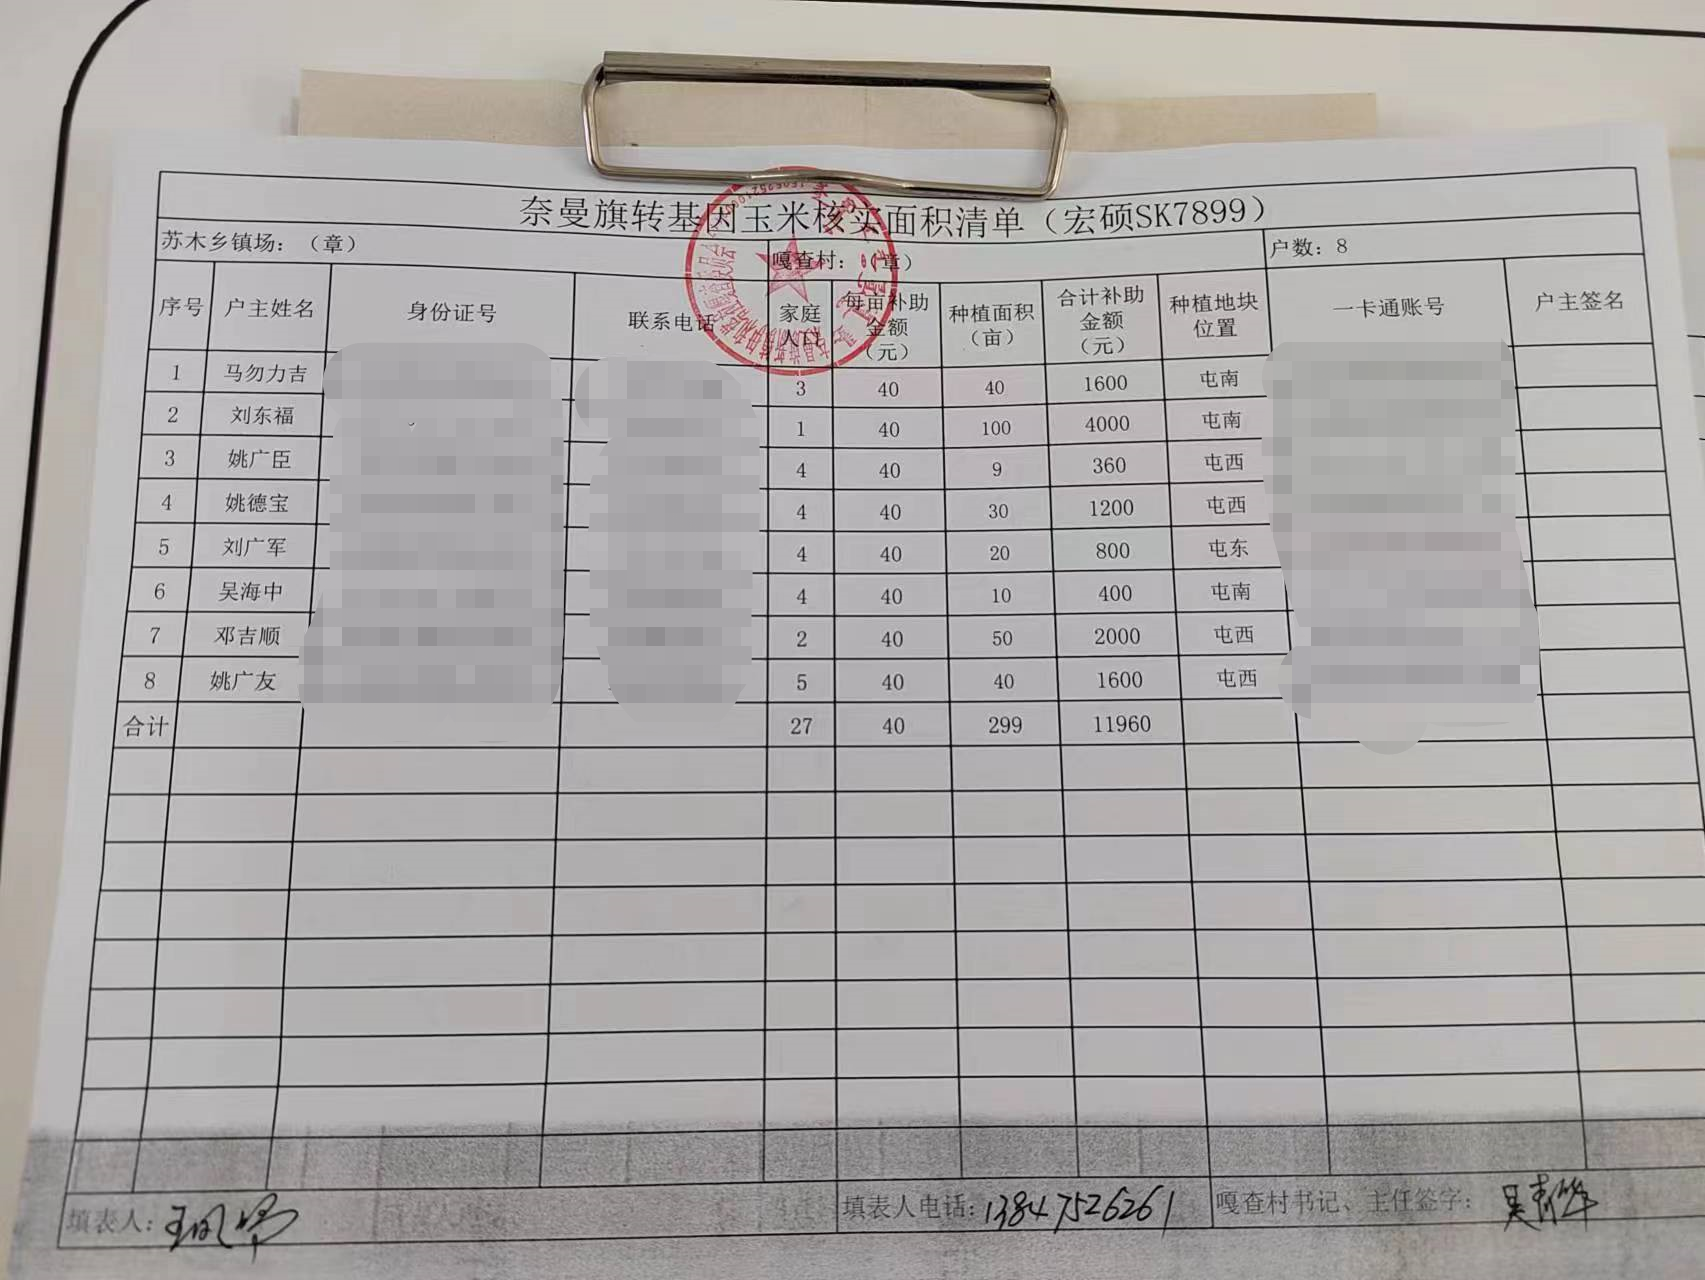 奈曼旗转基因玉米核实面积清单（宏硕SK7899）
苏木乡镇场：（章） 嘎查村：（章） 户数：8
序号 户主姓名 身份证号 联系电话 家庭人口 每亩补助金额（元） 种植面积（亩） 合计补助金额（元） 种植地块位置 一卡通账号 户主签名
1 马勿力吉 3 40 40 1600 屯南
2 刘东福 1 40 100 4000 屯南
3 姚广臣 4 40 9 360 屯西
4 姚德宝 4 40 30 1200 屯西
5 刘广军 4 40 20 800 屯东
6 吴海中 4 40 10 400 屯南
7 邓吉顺 2 40 50 2000 屯西
8 姚广友 5 40 40 1600 屯西
合计 27 40 299 11960
填表人： 填表人电话：13847526261 嘎查村书记、主任签字：